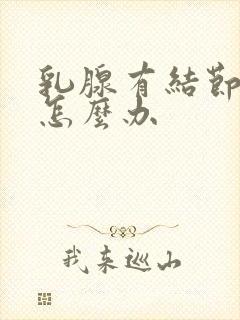 乳腺有結節
怎麼办
我来巡山